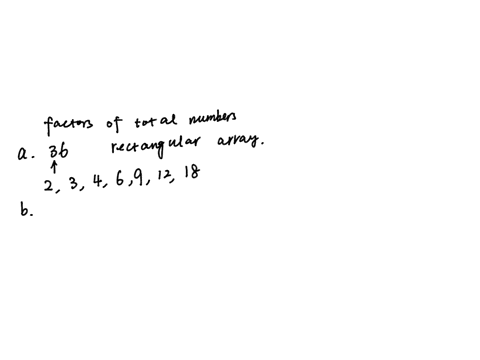 factors of total numbers
a. 36 rectangular array.
↑
2, 3, 4, 6, 9, 12, 18
b.